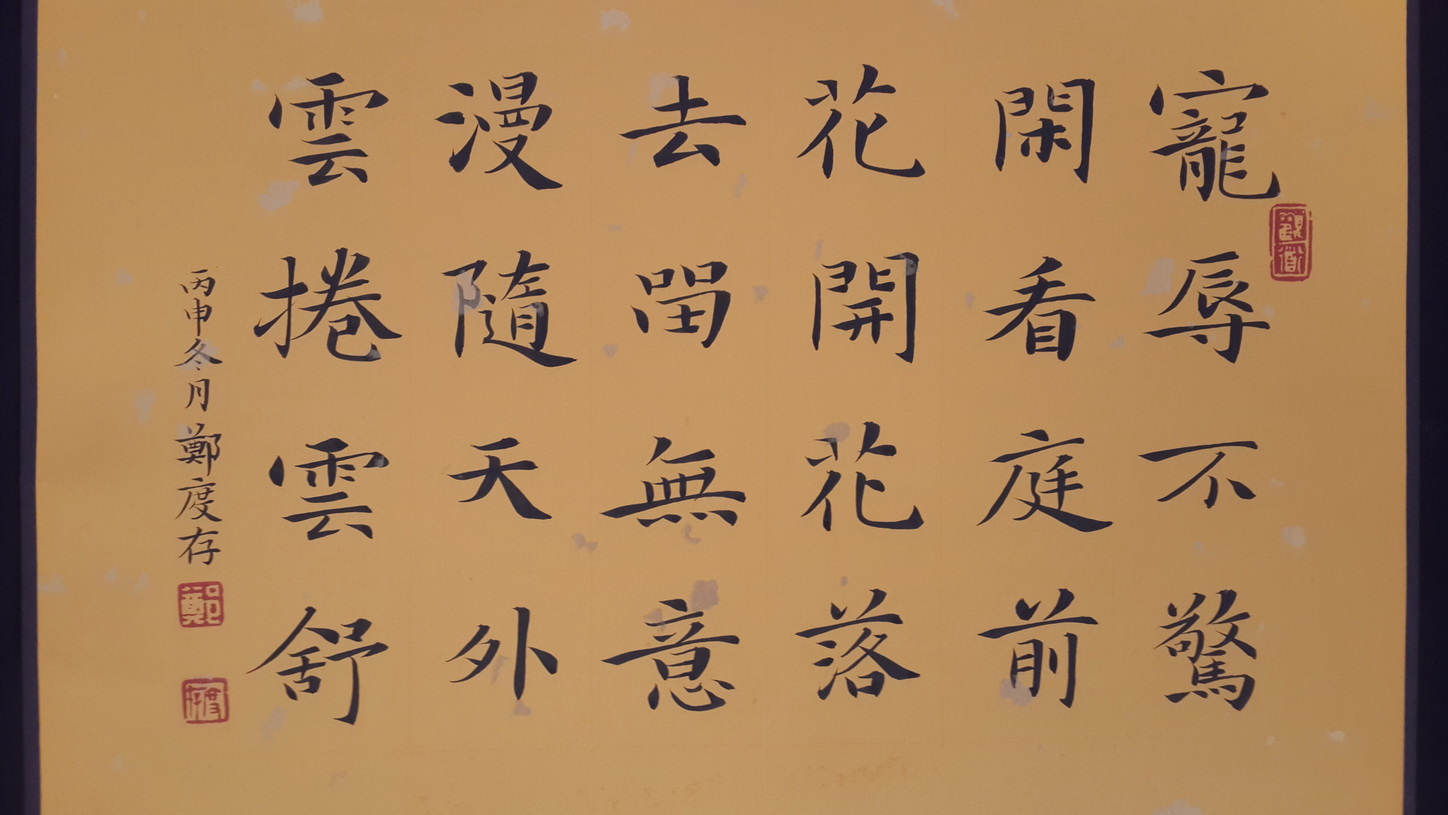 寵辱不驚
閑看庭前
花開花落
去留無意
漫隨天外
雲捲雲舒
丙申冬月鄭度存
鄭
度存